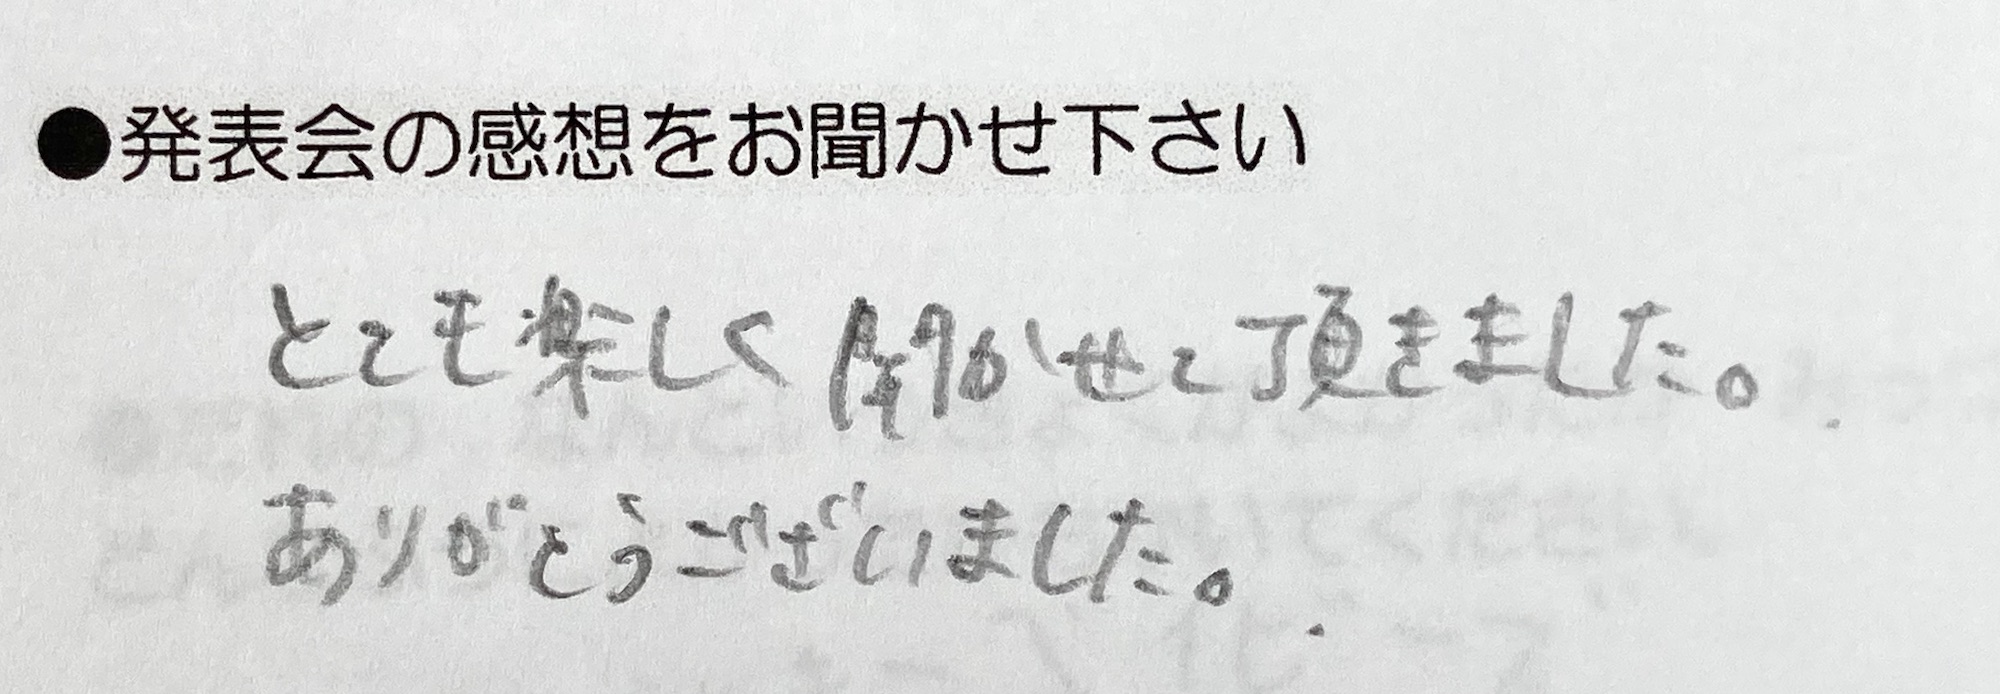 ●発表会の感想をお聞かせ下さい
とても楽しく聞かせて頂きました。
ありがとうございました。